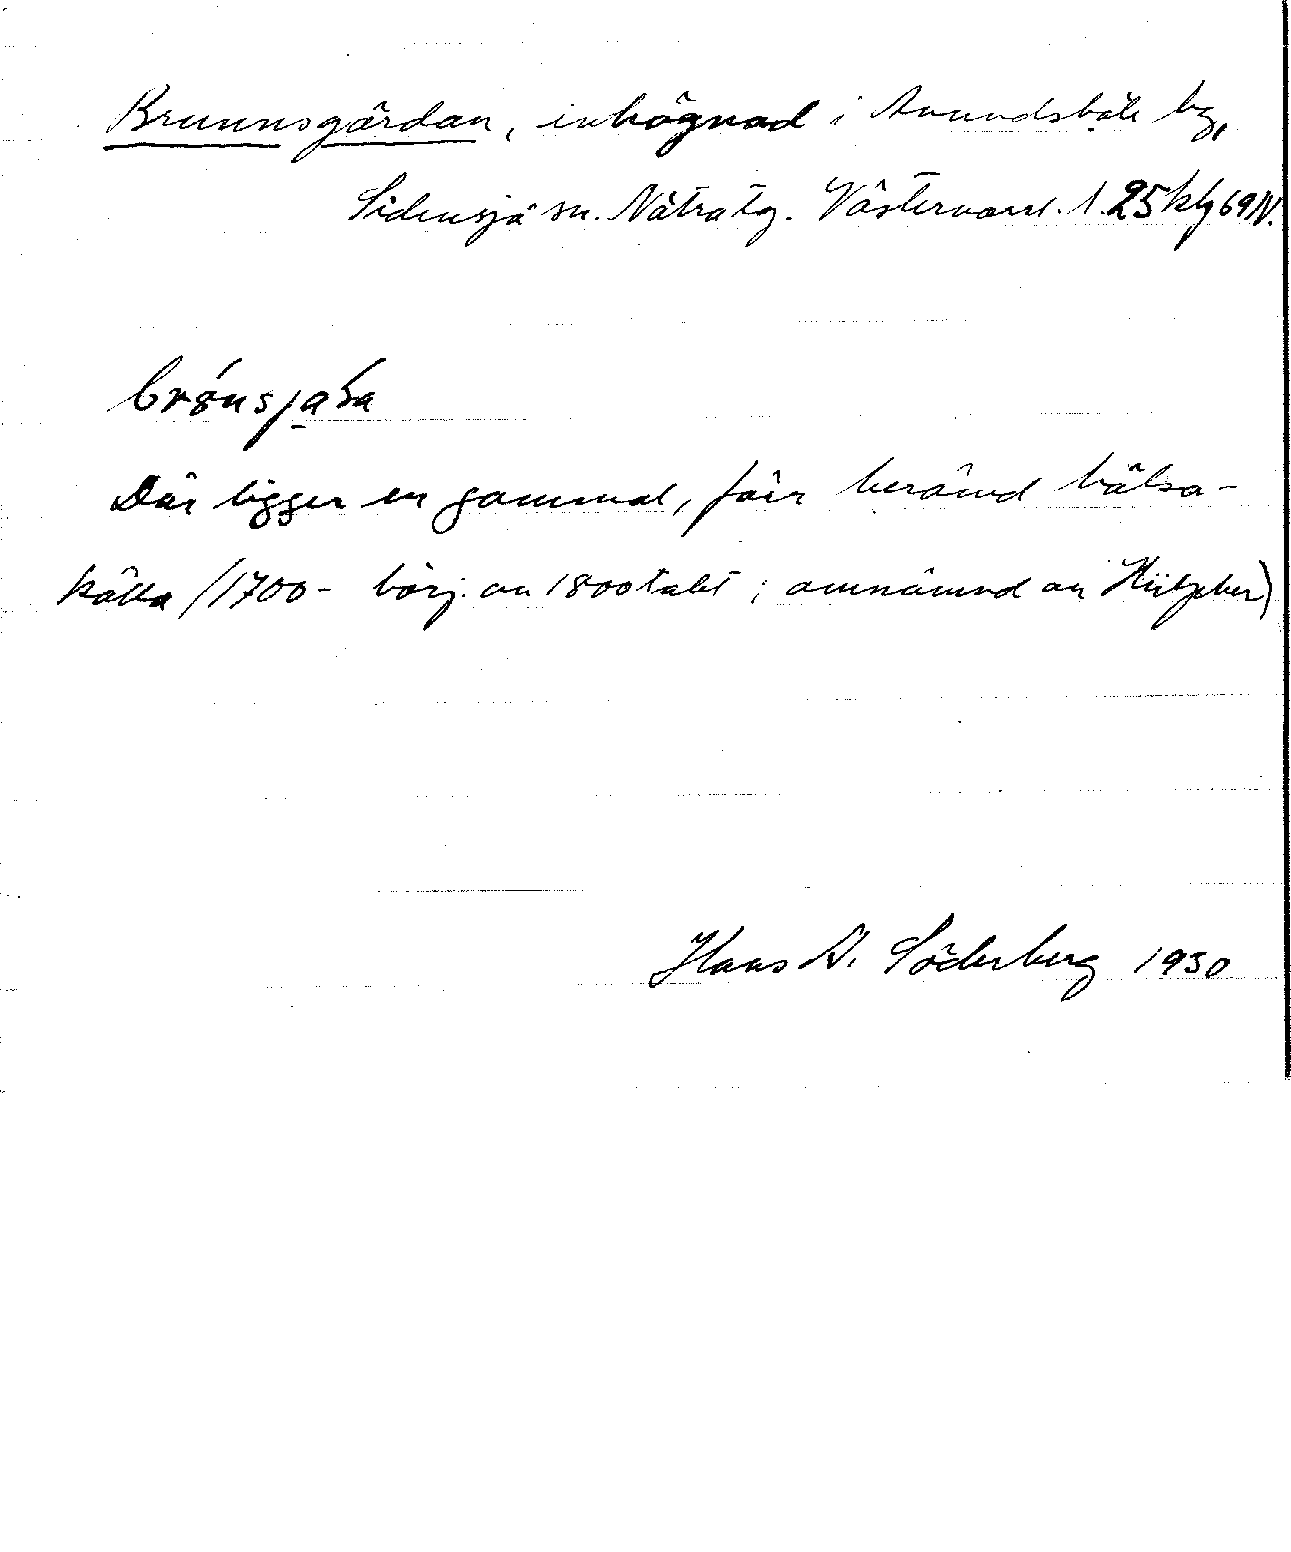 Brunnsgärdan, inhägnad i Avundsbäle by,
Sidensjö sn. Nätra tg. Västernorrl. l. 25 kbg 69 IV.
Där ligger en gammal, förr berömd hälso-
källa (1700- börj. av 1800talet; omnämnd av Hülpher)
Hans W. Söderberg 1930